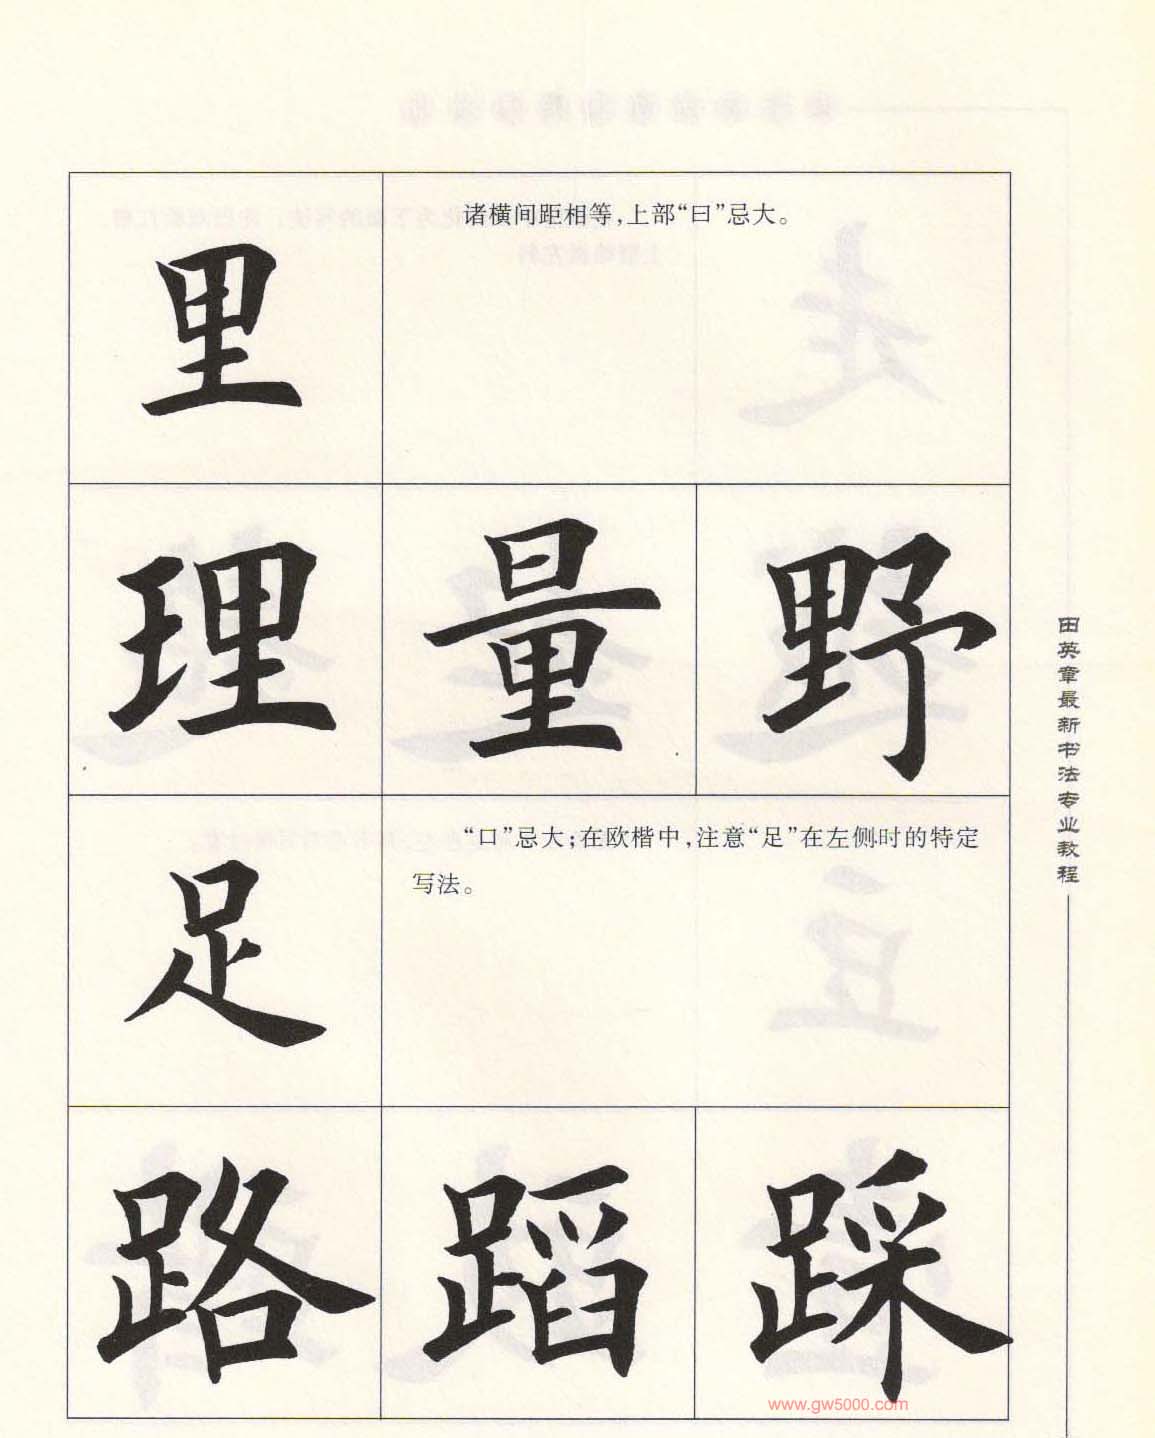 里
诸横间距相等,上部“曰”忌大。
理 量 野
足
“口”忌大;在欧楷中,注意“足”在左侧时的特定
写法。
路 蹈 踩
田英章最新书法专业教程
www.gw5000.com